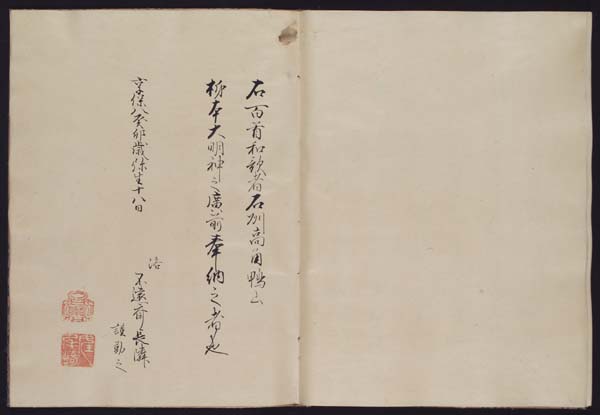 右百首和歌者石州高角鴨山
柿本大明神之廣前奉納之者也
享保八癸卯歳弥生十八日
洛
不遠斎長隣
謹 之